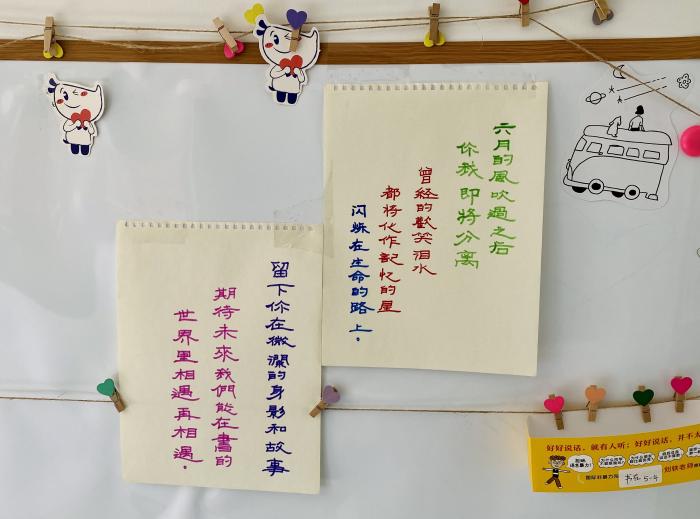 六月的風吹過之后
你我即將分离
曾经的歡笑泪水
都将化作記忆的星
闪烁在生命的路上。
留下你在微瀾的身影和故事
期待未來我們能在書的
世界里相遇再相遇。
好好说话，就有人听；好好说话，并不太
国际非暴力
老师
5-4